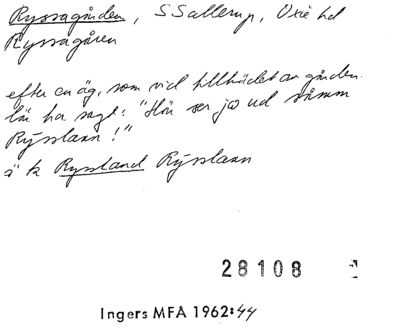 Ryssagården, S Sallerup, Oxie hd
Ryssagåren
efter en äg, som vid tillträdet av gården
lär ha sagt: "Här ser ja ud såmm
Rysslann!"
ä k Ryssland Rysslann
28108
Ingers MFA 1962:44